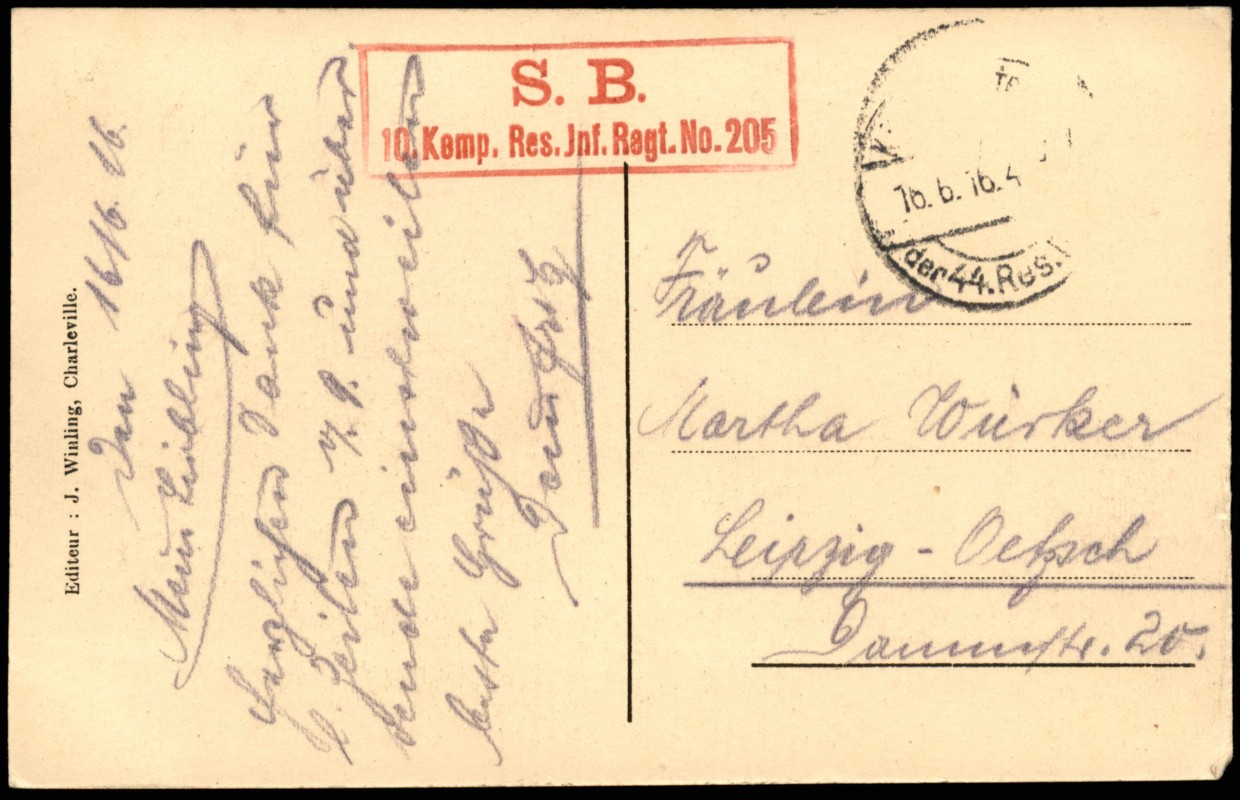 Editeur : J. Winling, Charleville.
Den 16 6. 16.
Mein Liebling
Herzlichen Dank für
l. Zeilen v. 9. und über
sende einstweilen
beste Grüße
S. B.
10. Komp. Res. Jnf. Regt. No. 205
16.6.16.4
der 44. Res.
Fräulein
Martha Würker
Leipzig - Oetzsch
Dammstr. 20.